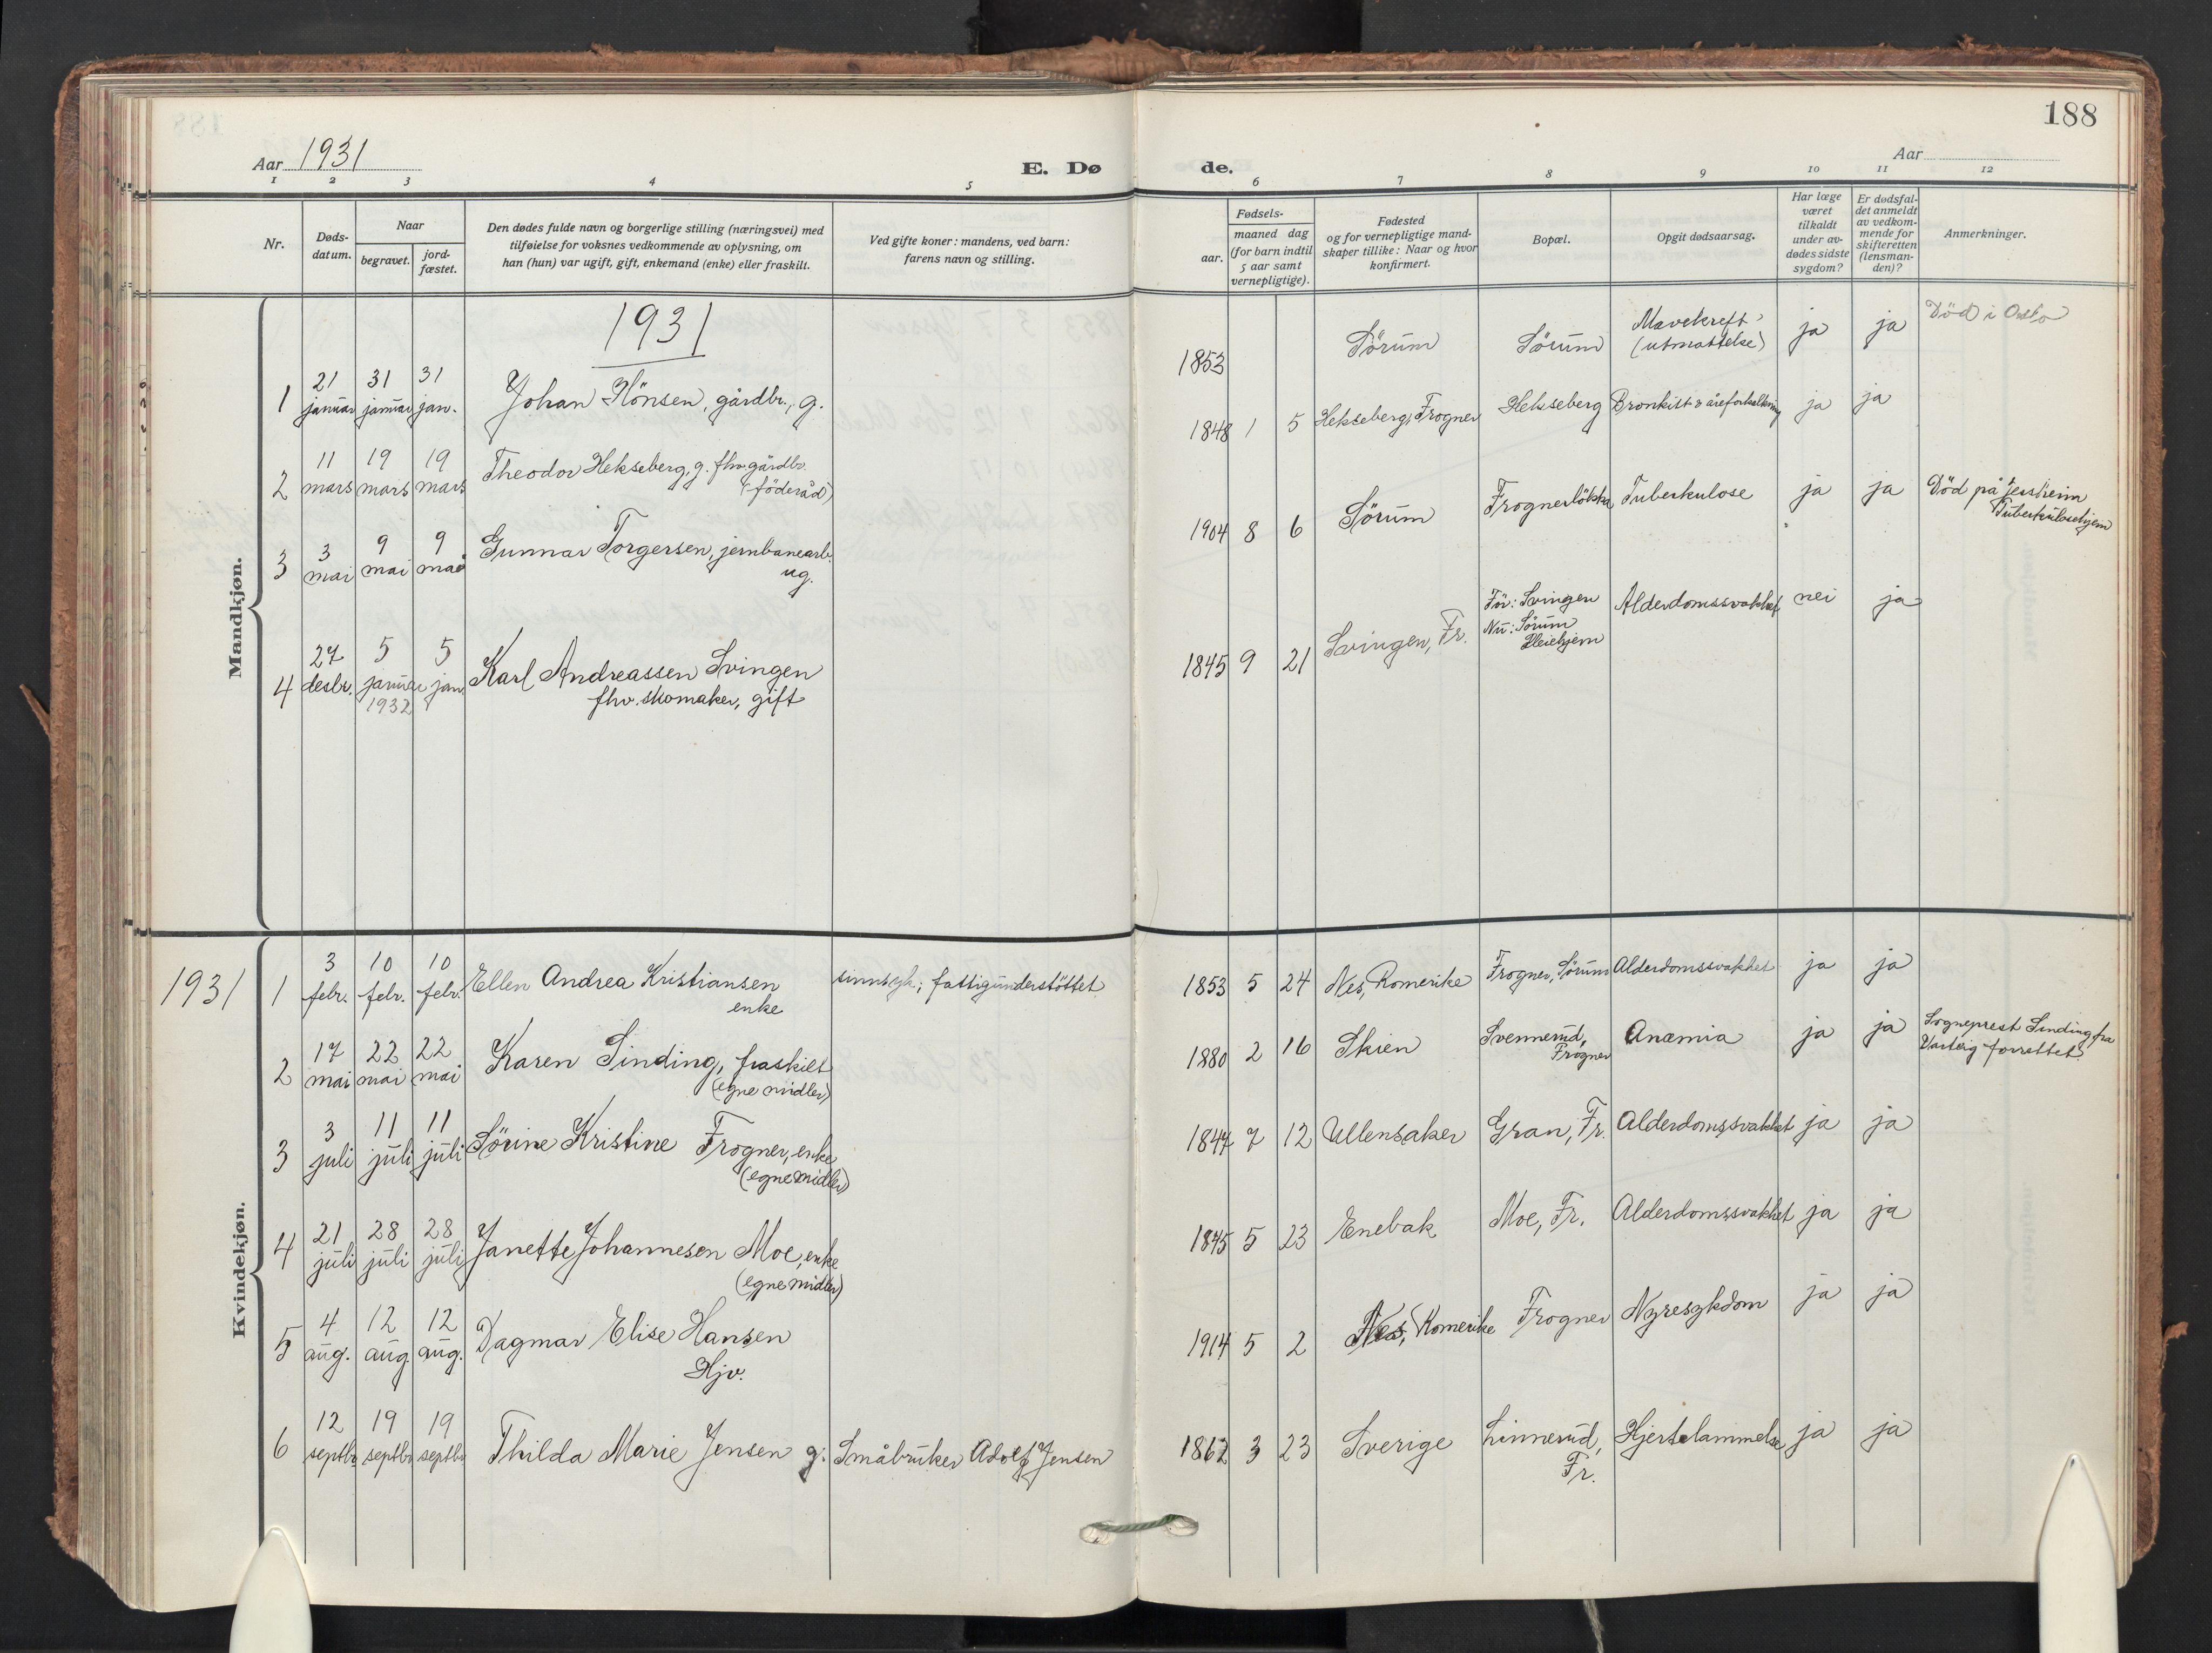 188
Aar 1931
E. Dø
de.
Aar
1 2 3 4 5 6 7 8 9 10 11 12
Nr.
Døds-
datum.
Naar
begravet.
jord-
fæstet.
Den dødes fulde navn og borgerlige stilling (næringsvei) med
tilføielse for voksnes vedkommende av oplysning, om
han (hun) var ugift, gift, enkemand (enke) eller fraskilt.
Ved gifte koner: mandens, ved barn:
farens navn og stilling.
Fødsels-
aar.
maaned dag
(for barn indtil
5 aar samt
vernepligtige).
Fødested
og for vernepligtige mand-
skaper tillike: Naar og hvor
konfirmert.
Bopæl.
Opgit dødsaarsag.
Har læge
været
tilkaldt
under av-
dødes sidste
sygdom?
Er dødsfal-
det anmeldt
av vedkom-
mende for
skifteretten
(lensman-
den)?
Anmerkninger.
Mandkjøn.
1931
1 21 januar 31 januar 31 jan. Johan Hönsen, gårdbr., g.
1853 Sörum Sörum Mavekreft
(utmattelse) ja ja Död i Oslo
2 11 mars 19 mars 19 mars Theodor Hekseberg, g. fhv. gårdbr.
(föderåd)
1848 1 5 Hekseberg, Frogner Hekseberg Bronkist & åreforkalkning ja ja
3 3 mai 9 mai 9 mai Gunnar Torgersen, jernbanearb.
ug.
1904 8 6 Sörum Frognerlökka Tuberkulose ja ja Död på Jessheim
Tuberkulosehjem
4 27 desbr. 5 januar 1932 5 jan. Karl Andreassen Svingen
fhv. skomaker, gift
1845 9 21 Svingen, Fr. För: Svingen
Nu: Sörum
Pleiehjem
Alderdomssvakhet nei ja
Kvindekjøn.
1931
1 3 febr. 10 febr. 10 febr. Ellen Andrea Kristiansen
enke
sinnsyk; fattigunderstöttet
1853 5 24 Nes, Romerike Frogner, Sörum Alderdomssvakhet ja ja
2 17 mai 22 mai 22 mai Karen Sinding, fraskilt
(egne midler)
1880 2 16 Skien Svennerud,
Frogner Anæmia ja ja Sogneprest Sinding fra
Varteig forrettet.
3 3 juli 11 juli 11 juli Sörine Kristine Frogner, enke
(egne midler)
1847 7 12 Ullensaker Gran, Fr. Alderdomssvakhet ja ja
4 21 juli 28 juli 28 juli Janette Johannesen Moe, enke
(egne midler)
1845 5 23 Enebak Moe, Fr. Alderdomssvakhet ja ja
5 4 aug. 12 aug. 12 aug. Dagmar Elise Hansen
Hjv.
1914 5 2 Nes, Romerike Frogner Nyresykdom ja ja
6 12 septbr. 19 septbr. 19 septbr. Thilda Marie Jensen g. Småbruker Adolf Jensen
1862 3 23 Sverige Linnerud,
Fr. Hjertelammelse ja ja